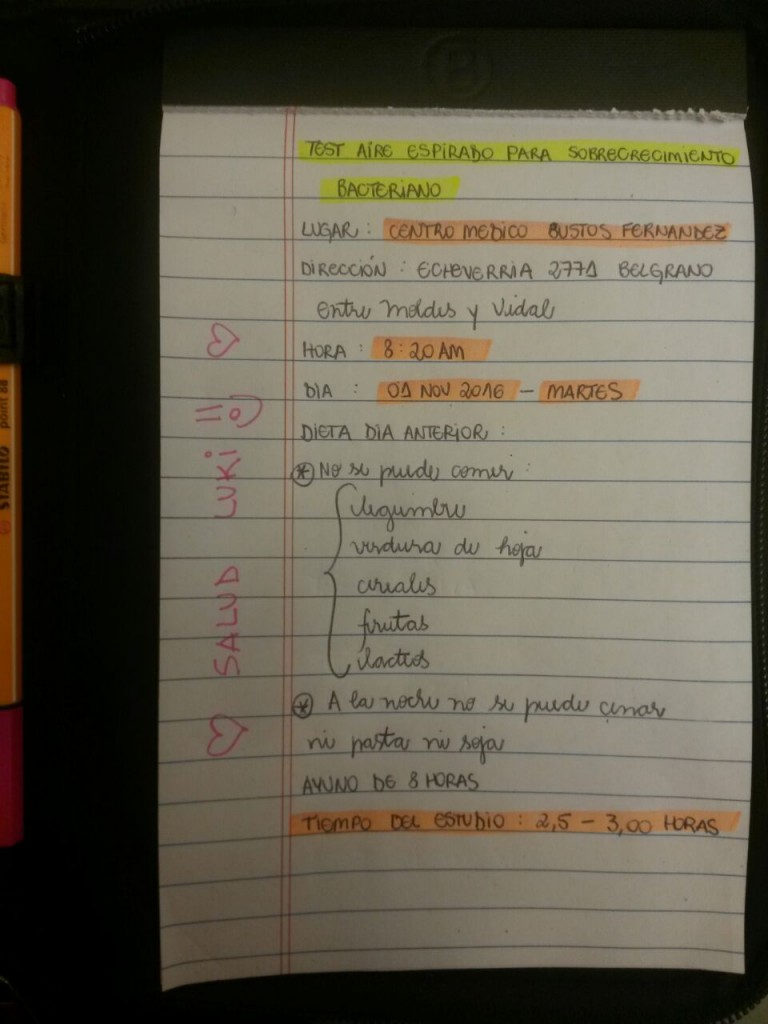 TEST AIRE ESPIRADO PARA SOBRECRECIMIENTO
BACTERIANO
LUGAR : CENTRO MEDICO BUSTOS FERNANDEZ
DIRECCIÓN : ECHEVERRIA 2771 BELGRANO
entre Moldes y Vidal
HORA : 8:20 AM
DIA : 01 NOV 2016 - MARTES
DIETA DIA ANTERIOR :
* No se puede comer :
legumbre
verdura de hoja
cereales
frutas
lacteos
* A la noche no se puede cenar
ni pasta ni soja
AYUNO DE 8 HORAS
TIEMPO DEL ESTUDIO : 2,5 - 3,00 HORAS
♡ SALUD LUKI =) ♡
STABILO point 88